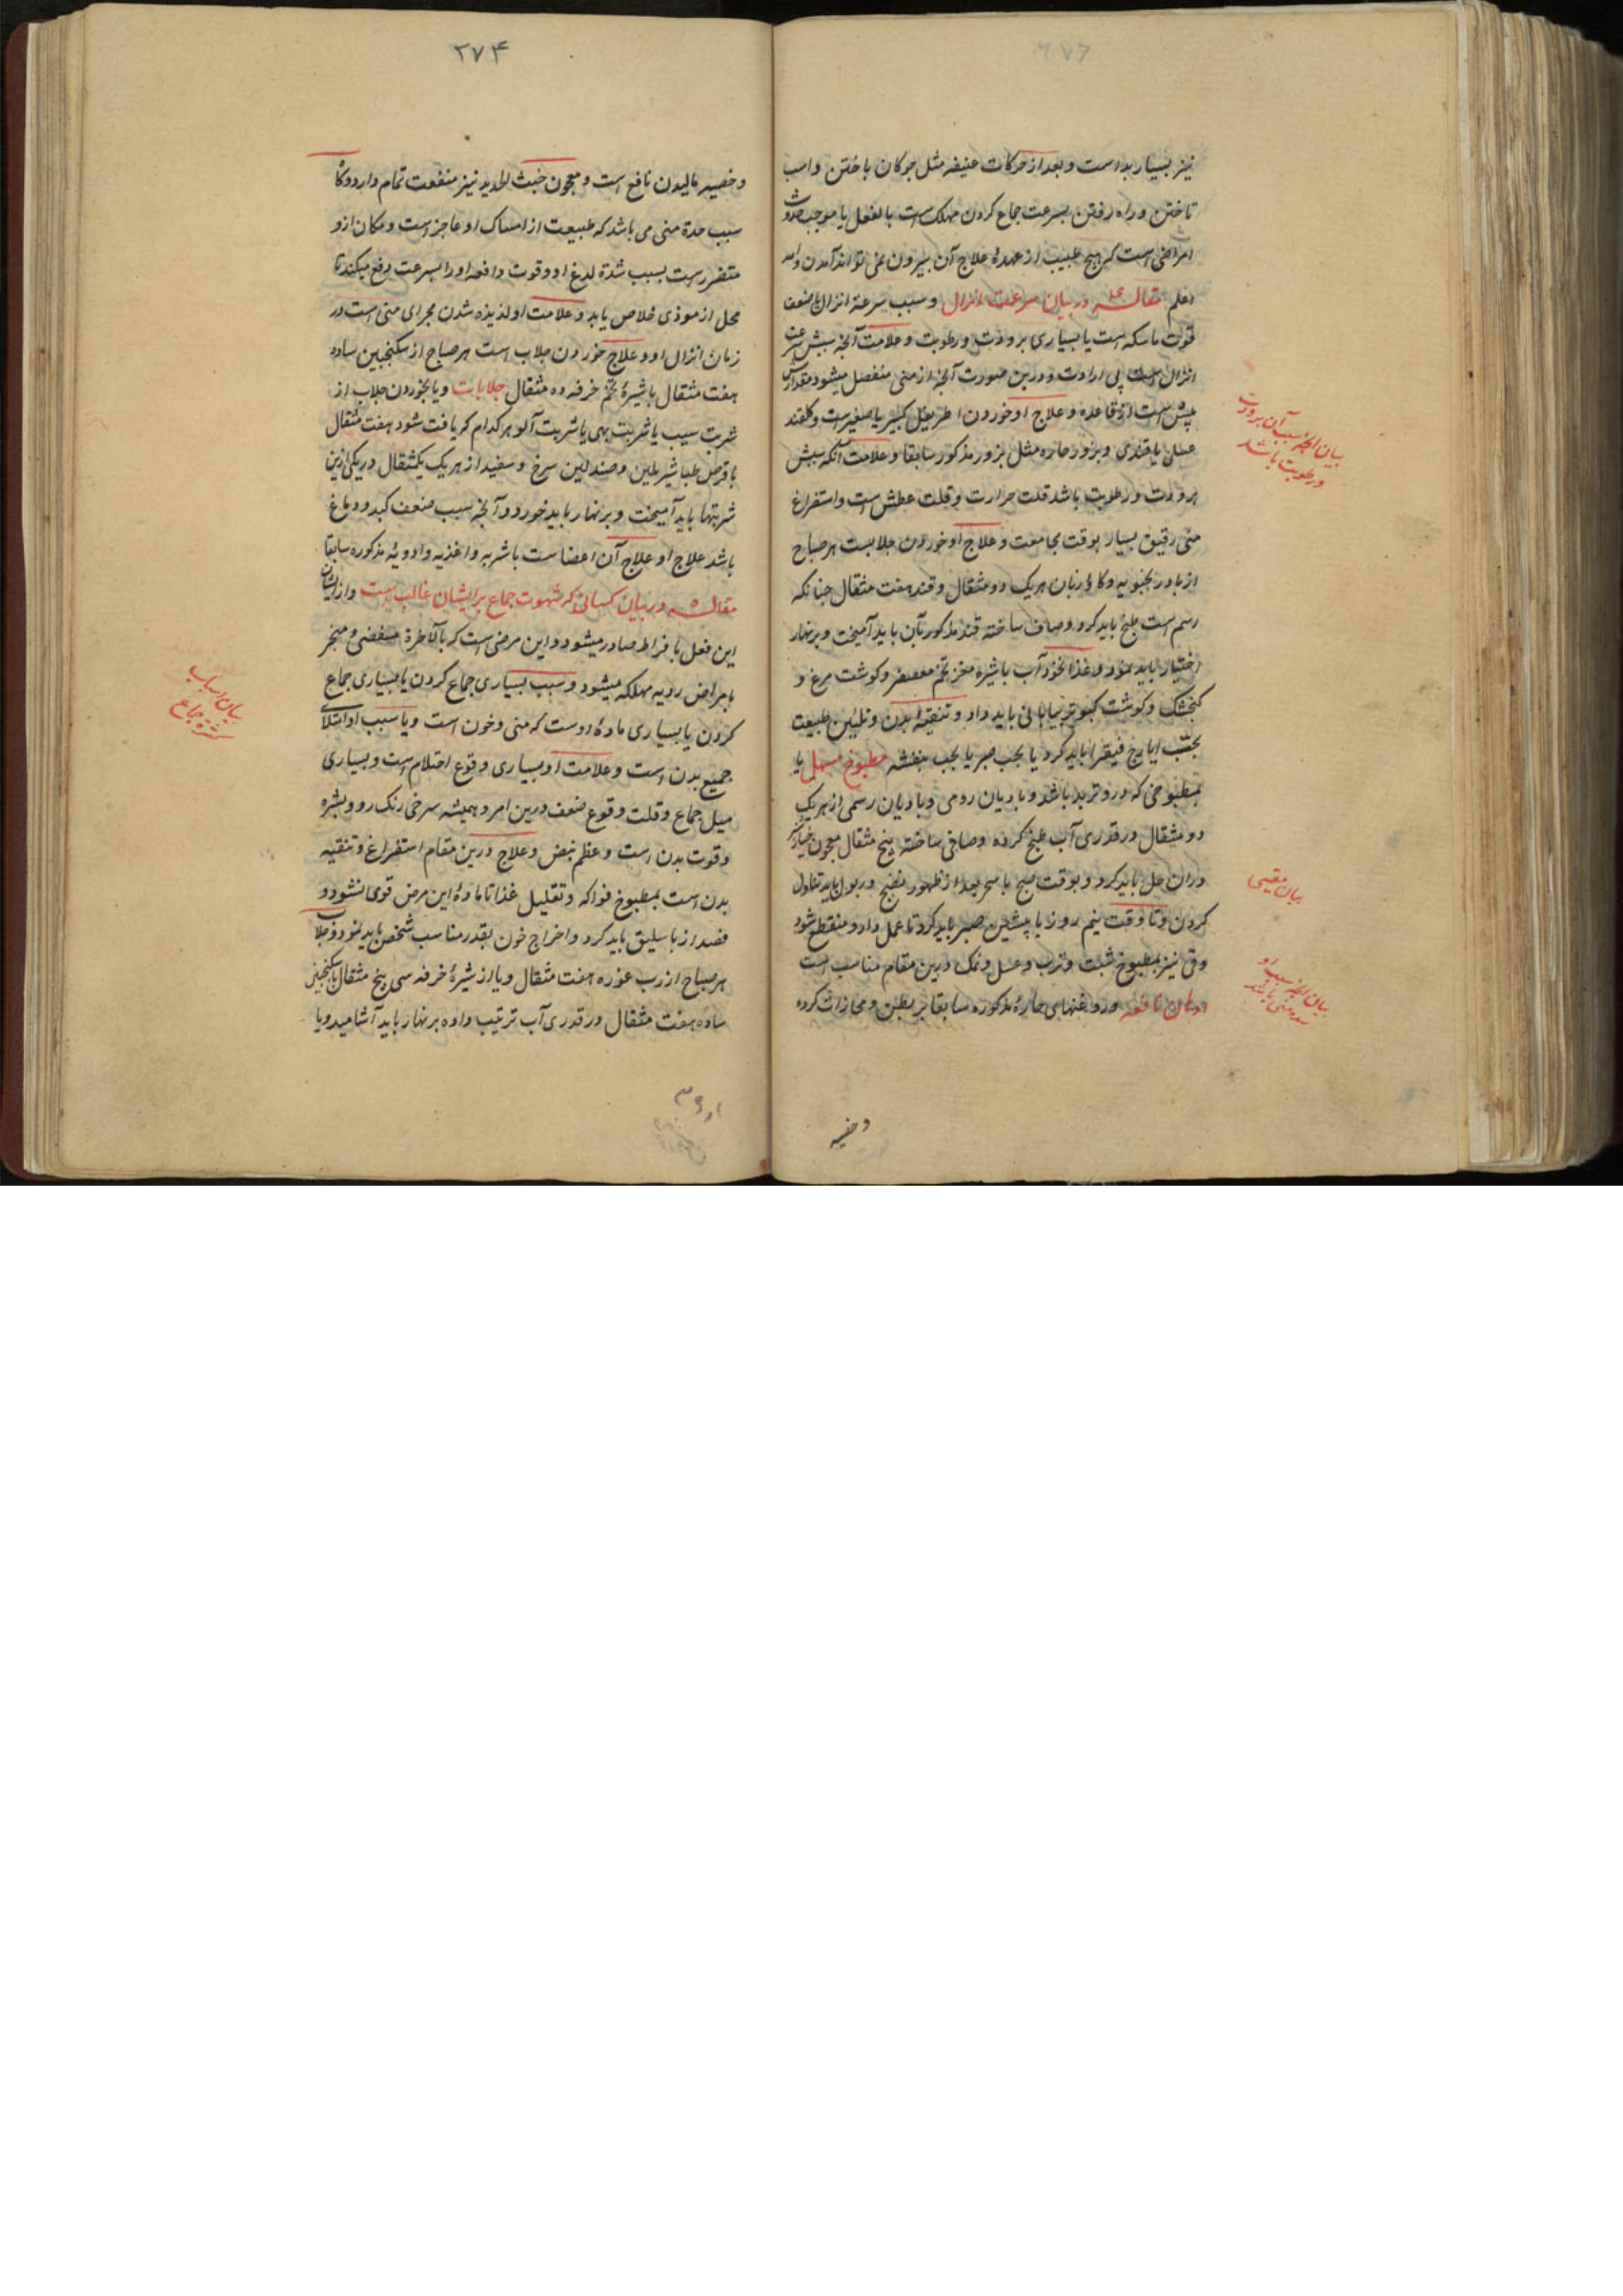 نیز بسیار بد است و بعد از حرکات عنیفه مثل چوکان باختن و اسب
تاختن و راه رفتن بسرعت جماع کردن مهلک است بالفعل یا موجب حدوث
امراضی است که هیچ طبیب از عهدهٔ علاج آن بیرون نمی تواند آمدن والله
اعلم مقاله در بیان سرعت انزال و سبب سرعة انزال یا ضعف
قوت ماسکه است یا بسیاری برودت و رطوبت و علامت آنچه سببش سرعت
انزال است بی ارادت و درین صورت آنچه از منی منفصل میشود مقدارش
بیش است از قاعده و علاج او خوردن اطریفل کبیر یا صغیر است و کلقند
عسلی یا قندی و بزور حاره مثل بزور مذکور سابقا و علامت آنکه سببش
برودت و رطوبت باشد قلت حرارت و قلت عطش است و استفراغ
منی رقیق بسیار بوقت مجامعت و علاج او خوردن جلابست هر صباح
از بادرنجبویه و کاو زبان هریک دو مثقال و قند هفت مثقال چنانکه
رسم است طبخ باید کرد و صاف ساخته قند مذکور بآن باید آمیخت و برنهار
اختیار باید نمود و غذا نخودآب باشیره مغز تخم معصفر و کوشت مرغ و
کنجشک و کوشت کبوتر بیابانی باید داد و تنقیهٔ بدن و تلیین طبیعت
بحبّ ایارج فیقرا باید کرد یا بحب صبر یا بحب بنفشه مطبوخ مسهل یا
بمطبوخی که درو تربد باشد و بادیان رومی و بادیان رسمی از هریک
دو مثقال در قدری آب طبخ کرده و صافی ساخته پنج مثقال معجون خیارک
دران حل باید کرد و بوقت صبح یا سحر بعد از ظهور نضج در بول باید تناول
کردن و تا وقت نیم روز یا پیشین صبر باید کرد تا عمل دارو منقطع شود
وقی نیز بمطبوخ شبت و ترب و عسل و نمک درین مقام مناسب است
ادهان نافعه و روغنهای حارهٔ مذکوره سابقا بر بطن و محازات کرده
وخصیه
بیان آنچه سبب آن برودت
و رطوبت باشد
بیان مقیی
بیان آنچه سبب او
حده منی باشد
۲۷۴
و خصیه مالیدن نافع است و معجون خبث الحدید نیز منفعت تمام دارد و کا
سبب حدة منی می باشد که طبیعت از امساک او عاجز است و مکان ازو
متضرر است بسبب شدة لدغ او و قوت دافعه او را بسرعت دفع میکند تا
محل از موذی خلاص یابد و علامت او لذیذه شدن مجرای منی است در
زمان انزال او و علاج خوردن جلاب است هر صباح از سکنجبین ساده
هفت مثقال باشیرهٔ تخم خرفه ده مثقال جلابات و یا بخوردن جلاب از
شربت سیب یا شربت بهی یا شربت آلو هرکدام که یافت شود هفت مثقال
با قرص طباشیر ملین و صندلین سرخ و سفید از هریک یکمثقال در یکی ازین
شربتها باید آمیخت و برنهار باید خورد و آنچه سبب ضعف کبد و دماغ
باشد علاج او علاج آن اعضاست باشربه و اغذیه و ادویهٔ مذکوره سابقا
مقاله در بیان کسانی که شهوت جماع بر ایشان غالب است و از ایشان
این فعل بافراط صادر میشود و این مرضی است که بالآخرة مفضی و منجر
بامراض ردیه مهلکه میشود و سبب بسیاری جماع کردن یا بسیاری جماع
کردن یا بسیاری مادهٔ اوست که منی و خون است و یا سبب او امتلای
جمیع بدن است و علامت او بسیاری وقوع احتلام است و بسیاری
میل جماع و قلت وقوع ضعف درین امر و همیشه سرخی رنک رو و بشره
و قوت بدن است و عظم نبض و علاج درین مقام استفراغ و تنقیه
بدن است بمطبوخ فواکه و تقلیل غذا تا مادهٔ این مرض قوی نشود و
فصد از باسلیق باید کرد و اخراج خون بقدر مناسب شخص باید نمود و جلاب
هر صباح از رب غوره هفت مثقال و یا از شیرهٔ خرفه سی پنج مثقال با سکنجبین
ساده هفت مثقال در قدری آب ترتیب داده برنهار باید آشامید و یا
بیان اسباب
کثرة جماع